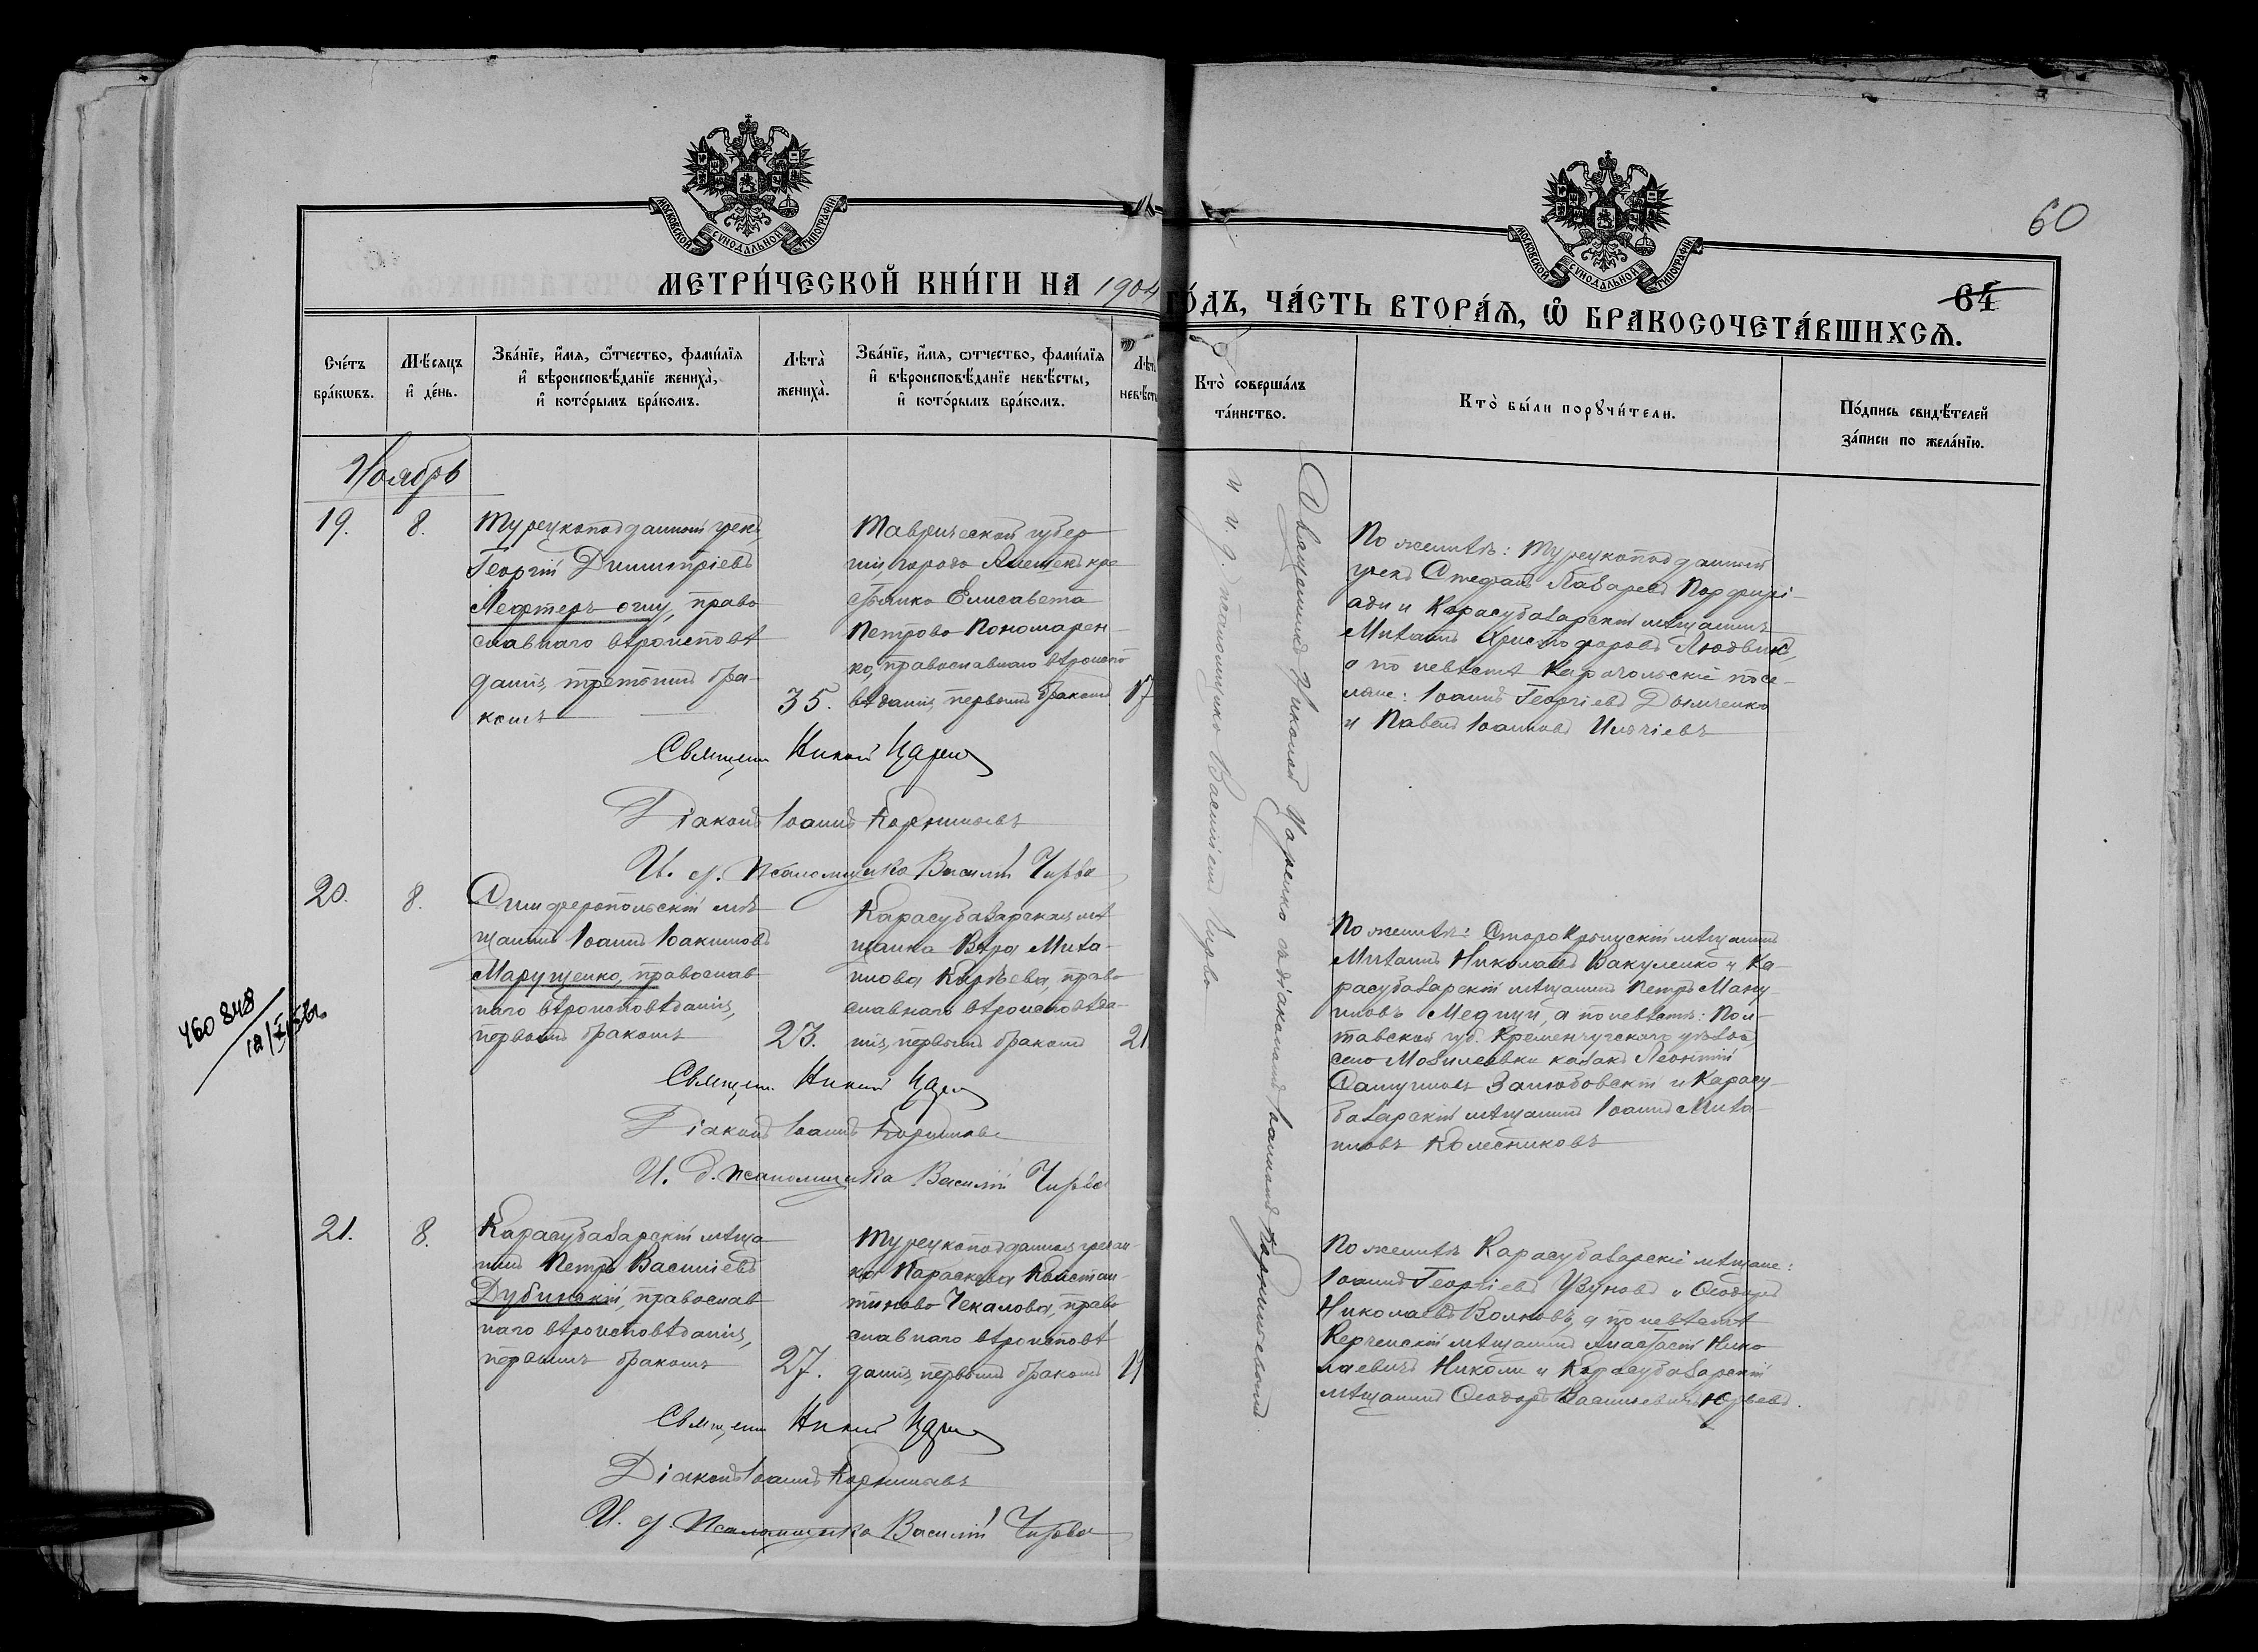 МОСКОВСКОЙ СѴНОДАЛЬНОЙ ТИПОГРАФІИ
МОСКОВСКОЙ СѴНОДАЛЬНОЙ ТИПОГРАФІИ
60
64
МЕТРИ́ЧЕСКОЙ КНИ́ГИ НА 1904 ГО́ДЪ, ЧА́СТЬ ВТОРА́Ѧ, Ѡ҆ БРАКОСОЧЕТА́ВШИХСѦ.
Сче́тъ
бра́кѡвъ.
Мѣ́сяцъ
и҆ де́нь.
Зва́нїе, и҆́мя, ѻ҆́тчество, фами́лїя
и҆ вѣроисповѣ́данїе жениха̀,
и҆ кото́рымъ бра́комъ.
Лѣта̀
жениха̀.
Зва́нїе, и҆́мя, ѻтчество, фами́лїя
и҆ вѣроисповѣ́данїе невѣ́сты,
и҆ кото́рымъ бра́комъ.
Лѣта
невѣ́сты
Кто̀ соверша́лъ
та́инство.
Кто̀ бы́ли порꙋчи́тели.
По́дпись свидѣ́телей
за́писи по жела́нїю.
Ноябрь
19.
8.
Турецкоподданный грекъ
Георгій Димитріевъ
Лефтеръ-оглу, право
славнаго вѣроисповѣ
данія, третьимъ бра-
комъ
35.
Таврической губер
ніи, города Алешекъ кре
стьянка Елисавета
Петрова Пономарен-
ко, православнаго вѣроиспо
вѣданія, первымъ бракомъ
17
По женихѣ: Турецкоподданный
грекъ Стефанъ Лазаревъ Порфирі-
ади и Карасубазарскій мѣщанинъ
Михаилъ Христофоровъ Людвигъ,
а по невѣстѣ Карачольскіе посе-
ляне: Іоаннъ Георгіевъ Дымченко
и Павелъ Іоанновъ Иличіевъ
Священ. Никол Царен
Діаконъ Іоаннъ Корнильевъ
И. д. Псаломщика Василій Чирва
20.
8.
Симферопольскій мѣ
щанинъ Іоаннъ Іоакимовъ
Марущенко, православ
наго вѣроисповѣданія,
первымъ бракомъ
23.
Карасубазарская мѣ
щанка Вѣра Михаи-
лова Карѣева, право
славнаго вѣроисповѣда-
нія, первымъ бракомъ
21
По женихѣ: Старокрымскій мѣщанинъ
Михаилъ Николаевъ Вакуленко и Ка-
расубазарскій мѣщанинъ Петръ Ману
иловъ Медици, а по невѣстѣ: Пол-
тавской губ. Кременчугскаго уѣзда
села Мозилеевки казакъ Леонтій
Самуиловъ Залюбовскій и Карасу-
базарскій мѣщанинъ Іоаннъ Михаи-
ловъ Колесниковъ
Священ. Никол Царен
Діаконъ Іоаннъ Корнильевъ
И. д. Псаломщика Василій Чирва
21.
8.
Карасубазарскій мѣща
нинъ Петръ Василіевъ
Дубинскій, православ
наго вѣроисповѣданія,
первымъ бракомъ
27.
Турецкоподданная гречан-
ка Параскева Констан-
тинова Чекалова, право
славнаго вѣроисповѣ
данія, первымъ бракомъ
19
По женихѣ Карасубазарскіе мѣщане:
Іоаннъ Георгіевъ Узуновъ и Ѳеодоръ
Николаевъ Волковъ, а по невѣстѣ
Керченскій мѣщанинъ Анастасій Нико
лаевичъ Николи и Карасубазарскій
мѣщанинъ Ѳеодоръ Василіевичъ Юрьевъ.
Священ. Никол Царен
Діаконъ Іоаннъ Корнильевъ
И. д. Псаломщика Василій Чирва
Священникъ Николай Царенко съ діакономъ Іоанномъ Корнильевымъ
и и. д. псаломщика Василіемъ Чирва
460 848